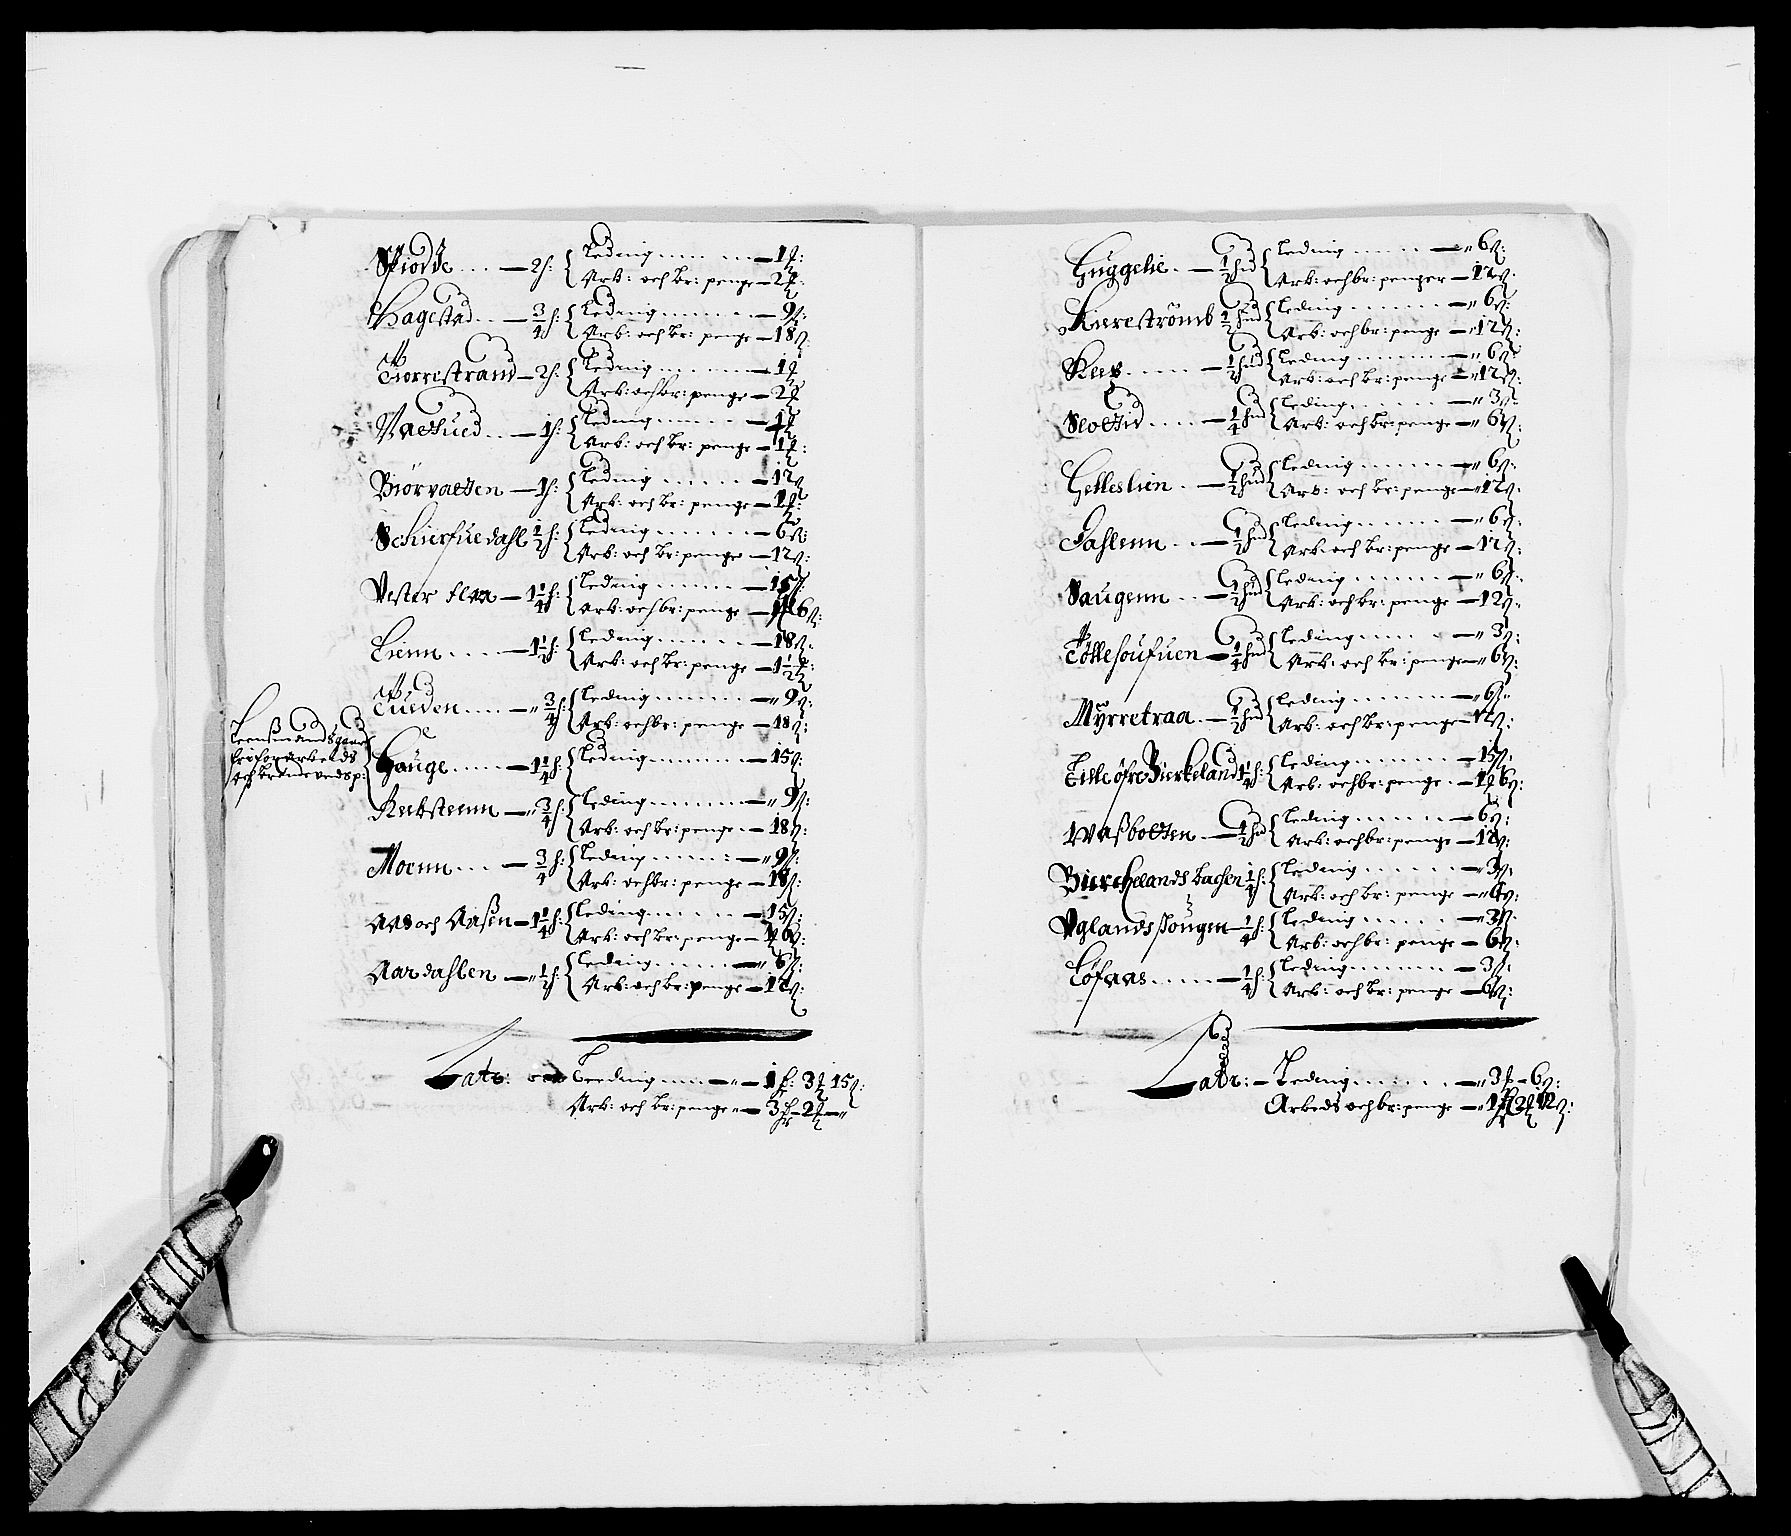 Schiodde .... — 2 h: { Leding ..... — 1 ₰:
Arb: och br: penge — 2 ₰
Hagestad .. — 3/4 h: { Leding ...... — 9 ß:
Arb: och br: penge — 18 ß:
Tiorrestrand — 2 h: { Leding ...... — 1 ₰
Arb: och br: penge — 2 ₰
Vaettued .. — 1 h: { Leding ..... — 1 ₰
Arb: och br: penge — 1 ₰:
Biörvatten — 1 h: { Leding ..... — 12 ß
Arb: och br: penge — 1 ₰:
Schierfuedahl 1/2 h: { Leding ...... — 6 ß:
Arb: och br: penge — 12 ß:
Vester Flaa — 1 1/4 h: { Leding ...... — 15 ß:
Arb: och br: penge — 1 ₰ 6 ß:
Lienn .... — 1 1/2 h: { Leding ...... — 18 ß:
Arb: och br: penge — 1 1/2 ₰:
Tueden .... — " 3/4 h: { Leding ...... — " 9 ß:
Arb: och br: penge — 18 ß:
Lensmands gaard
fri for Arbeids
och brendeveds p:
Hauge ..... — 1 1/4 h: { Leding ...... — 15 ß:
Rebsteinn — " 3/4 h: { Leding ...... — " 9 ß:
Arb: och br: penge .. — 18 ß:
Moenn ... — 3/4 h: { Leding .....: — " 9 ß:
Arb: och br: penge — 18 ß:
Aas och Aaßen — 1 1/4 h: { Leding ..... — 15 ß:
Arb: och br: penge — 1 ₰ 6 ß:
Aardahlen — " 1/2 h: { Leding ...... — " 6 ß:
Arb: och br: penge — 12 ß:
Latr: Leeding .... — " — 1 f: 3 ₰ 15 ß:
Arb: och br: penge " — 3 f — 2 ₰ — "
Guggelie .. — 1/2 hud { Leding ..... — " 6 ß:
Arb: och br: penger — 12 ß:
Kiereströmb 1/2 hud { Leding ...... — " 6 ß:
Arb: och br: penge — " 12 ß:
Keeb ..... — 1/2 hud { Leding ...... — " 6 ß:
Arb: och br: penge — " 12 ß:
Sloettid .... — 1/4 hud { Leding ...... — " 3 ß:
Arb: och br: penge — " 6 ß:
Gelleslien .. — 1/2 hud { Leding ...... — " 6 ß:
Arb: och br: penge — " 12 ß:
Dahlenn .. — 1/2 hud { Leding ...... — " 6 ß:
Arb: och br: penge — 12 ß:
Haugenn .. — 1/2 hud { Leding ...... — " 6 ß:
Arb: och br: penge — 12 ß:
Töllesoufuen — 1/4 hud { Leding ..... — " 3 ß:
Arb: och br: penge — " 6 ß:
Myrretraa .. — 1/2 hud { Leding ...... — " 6 ß:
Arb: och br: penge — 12 ß:
Lille öfre Bierkeland 1 1/4 h: { Leding ...... — 15 ß:
Arb: och br: penge — 1 ₰ 6 ß:
Waßbotten — 1/2 hud { Leding ...... — 6 ß:
Arb: och br: penge — 12 ß:
Bierchelands bachen 1/4 h: { Leding ...... — " 3 ß:
Arb: och br: penge — " 6 ß:
Uglands hougen — 1/4 h: { Leding ..... — " 3 ß:
Arb: och br: penge — 6 ß:
Löfaas ..... — 1/4 h: { Leding ...... — 3 ß:
Arb: och br: penge — 6 ß:
Latr: — Leding ...... — " 3 f — 6 ß:
Arbeds och br: penge — " 1 f 2 ₰ 12 ß: